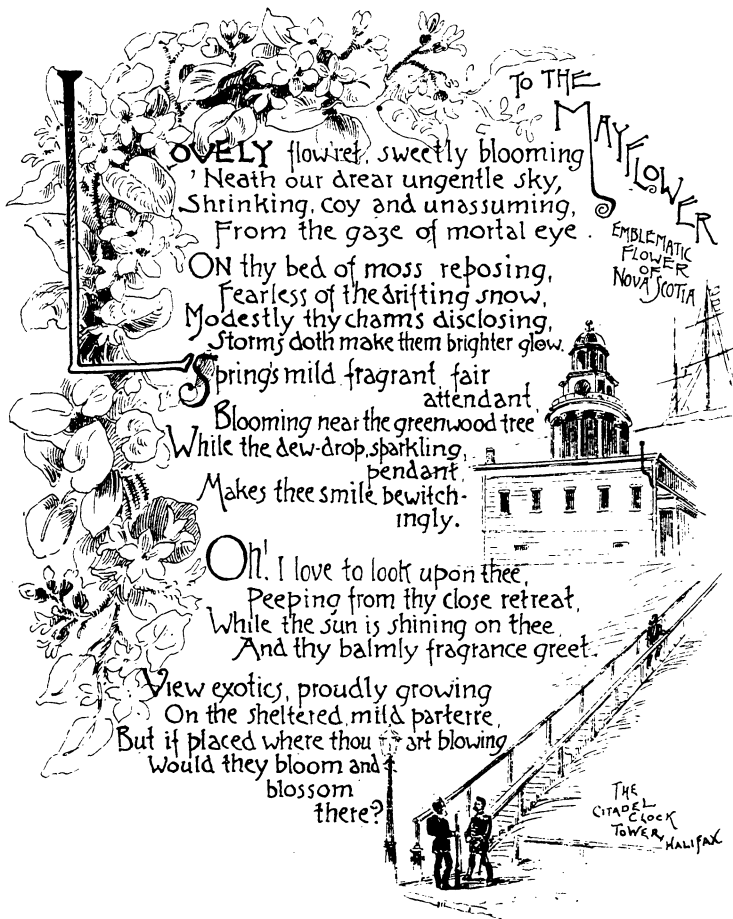 TO THE
MAYFLOWER
EMBLEMATIC
FLOWER
OF
NOVA SCOTIA
LOVELY flow'ret, sweetly blooming
'Neath our drear ungentle sky,
Shrinking, coy and unassuming,
From the gaze of mortal eye.
ON thy bed of moss reposing,
Fearless of the drifting snow,
Modestly thy charms disclosing,
Storms doth make them brighter glow.
Spring's mild fragrant fair
attendant,
Blooming near the greenwood tree
While the dew-drop, sparkling,
pendant,
Makes thee smile bewitch-
ingly.
Oh! I love to look upon thee,
Peeping from thy close retreat,
While the sun is shining on thee,
And thy balmly fragrance greet.
View exotics, proudly growing
On the sheltered, mild parterre,
But if placed where thou art blowing
Would they bloom and
blossom
there?
THE
CITADEL
CLOCK
TOWER,
HALIFAX